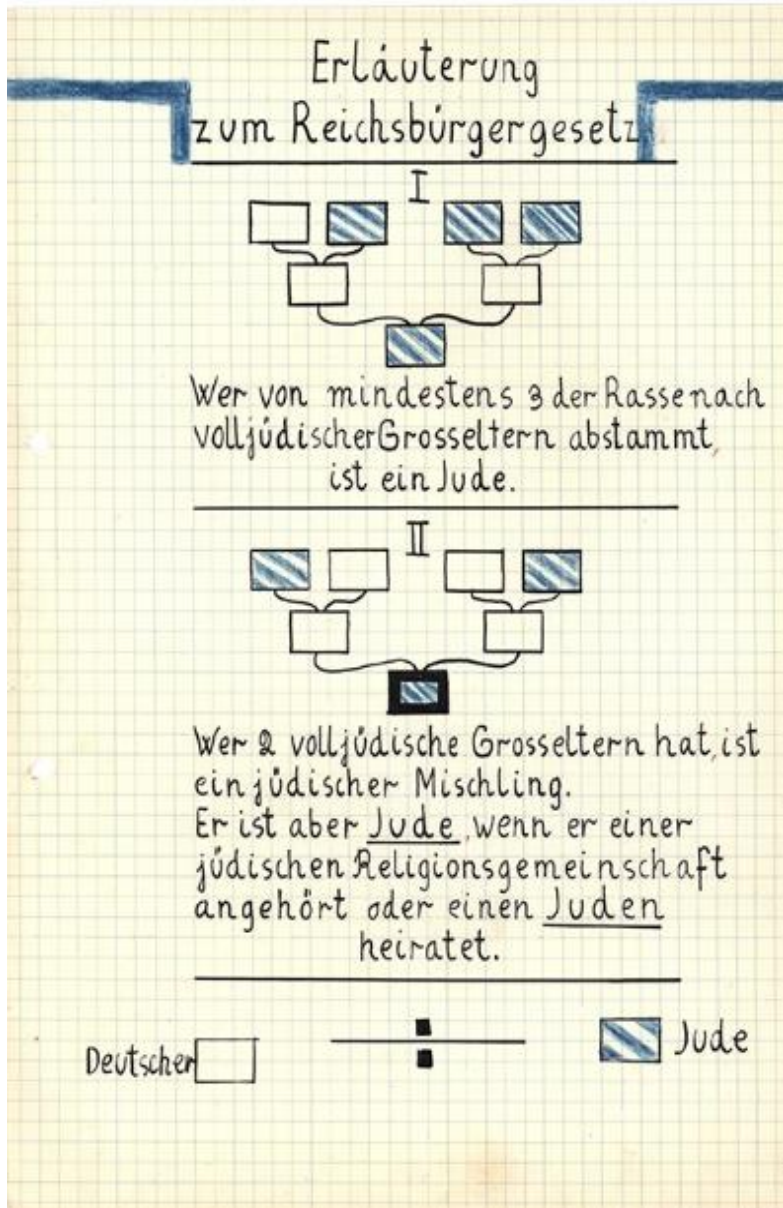 Erläuterung
zum Reichsbürgergesetz
I
Wer von mindestens 3 der Rasse nach
volljüdischer Grosseltern abstammt,
ist ein Jude.
II
Wer 2 volljüdische Grosseltern hat, ist
ein jüdischer Mischling.
Er ist aber Jude, wenn er einer
jüdischen Religionsgemeinschaft
angehört oder einen Juden
heiratet.
Deutscher
Jude